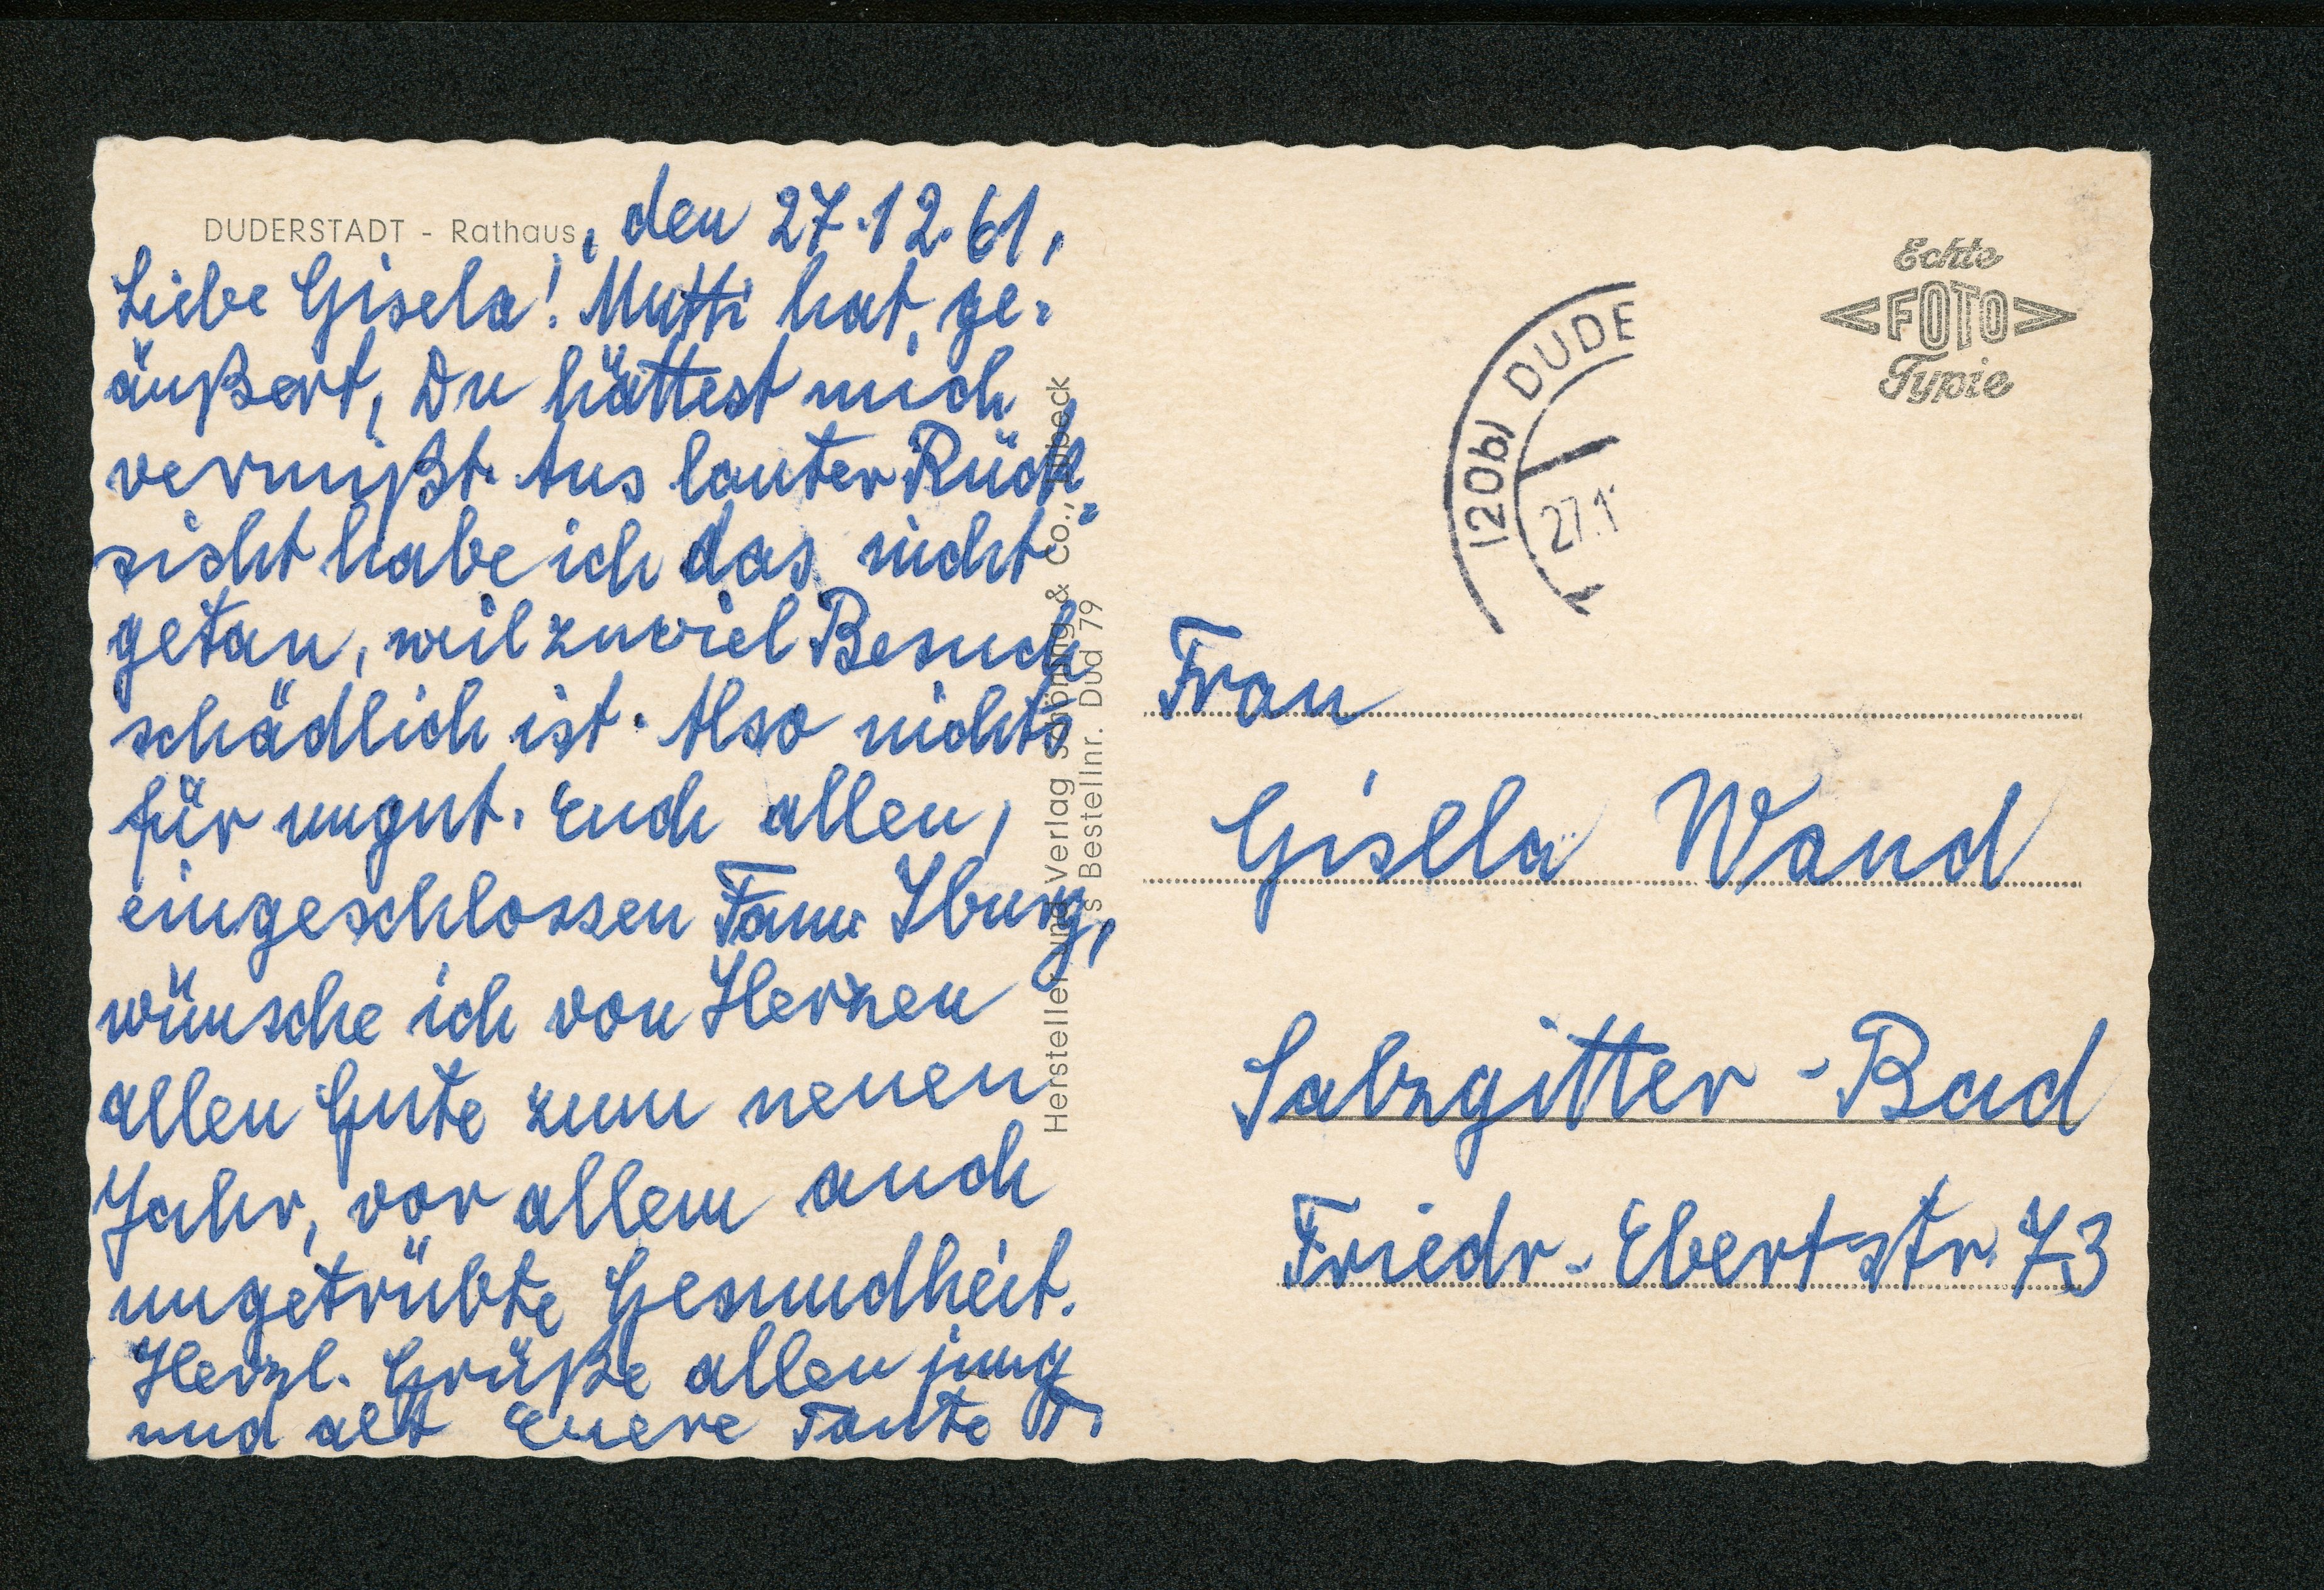 DUDERSTADT - Rathaus, den 27.12.61,
Liebe Gisela! Mutti hat ge-
äußert, Du hättest mich
vermißt. Aus lauter Rück-
sicht habe ich das nicht
getan, weil zuviel Besuch
schädlich ist. Also nichts
für ungut. Euch allen,
eingeschlossen Fam. Iburg,
wünsche ich von Herzen
allen Gute zum neuen
Jahr, vor allem auch
ungetrübte Gesundheit.
Herzl. Grüße allen jung
und alt Euere Tante T.
Hersteller und Verlag Schöning & Co., Lübeck
s Bestellnr. Dud 79
(20b) DUDE
27.1
Echte
FOTO
Typie
Frau
Gisela Wand
Salzgitter-Bad
Friedr.-Ebertstr. 73